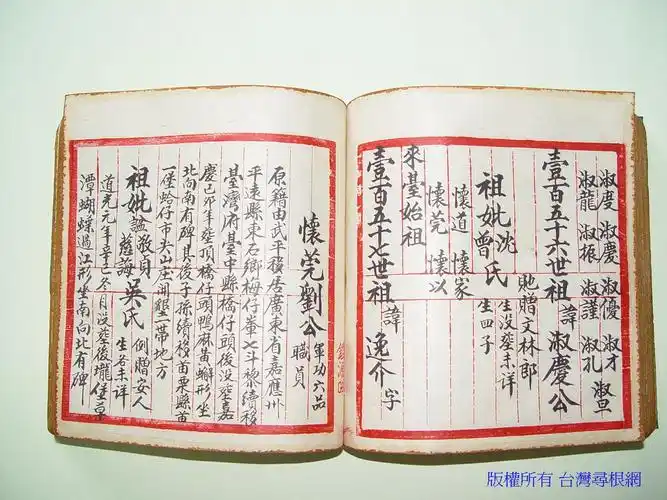 淑度 淑慶 淑優 淑才 淑畢
淑龍 淑振 淑謹 淑孔
壹百五十六世祖 諱 淑慶公
貤贈文林郎
生没塟未详
祖妣 沈 曾 氏 生四子
懷道 懷家
懷莞 懷以
來臺始祖
壹百五十七世祖 諱 逸介 字
懷莞劉公 軍功六品 職員
原籍由武平移居廣東省嘉應州
平遠縣東石鄉梅仔輋七斗黎續移
臺灣府臺中縣橋仔頭後没塟嘉
慶己卯年塟頂橋仔頭鴨麻黃辮形坐
北向南有碑其後子孫續移苗栗縣苗
一堡蛤仔市尖山庄開墾一帶地方
祖妣 謚 敬貞 慈誨 吳氏 例贈安人 生谷未详
道光元年辛巳冬月没塟後壠堡草
潭蝴蝶過江形坐南向北有碑
版權所有 台灣尋根網